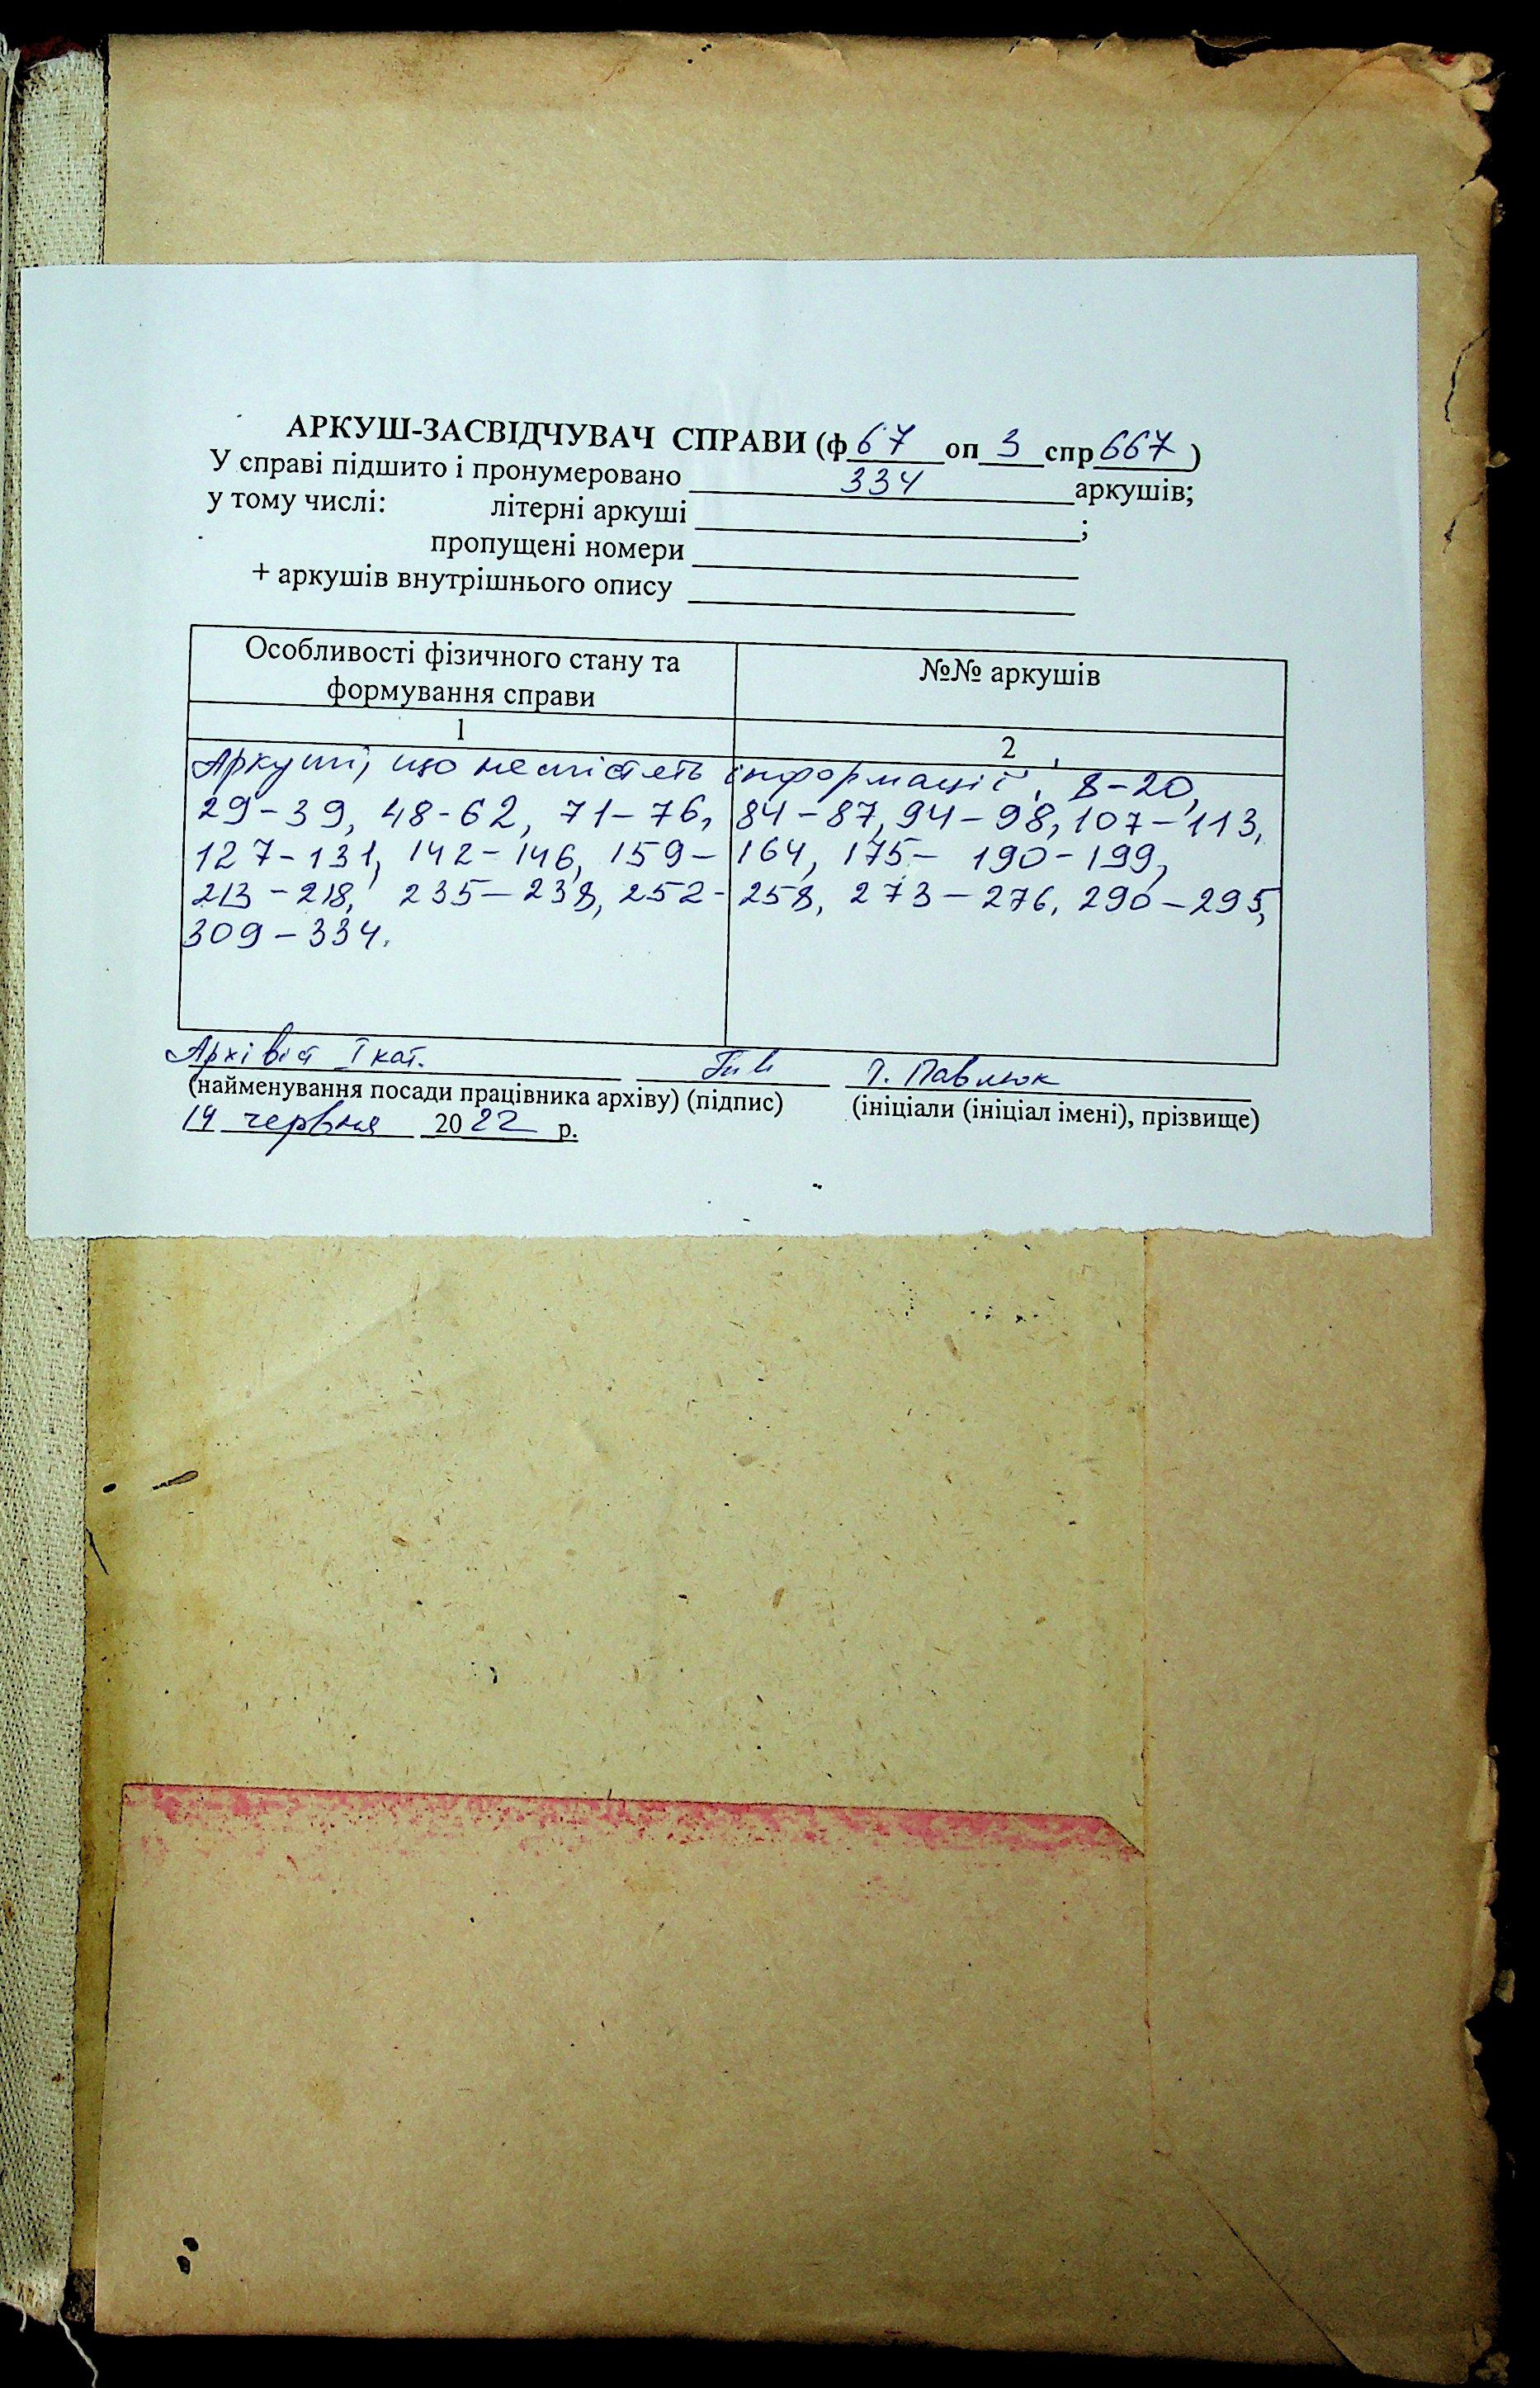 АРКУШ-ЗАСВІДЧУВАЧ СПРАВИ (ф 67 оп 3 спр 667 )
У справі підшито і пронумеровано 334 аркушів;
у тому числі: літерні аркуші ;
пропущені номери
+ аркушів внутрішнього опису
Особливості фізичного стану та формування справи
№№ аркушів
1
2
Аркуші, що не містять інформації, 8-20,
29-39, 48-62, 71-76, 84-87, 94-98, 107-113,
127-131, 142-146, 159-164, 175- 190-199,
213-218, 235-238, 252-258, 273-276, 290-295,
309-334.
Архівіст І кат. Павлюк
(найменування посади працівника архіву) (підпис) (ініціали (ініціал імені), прізвище)
14 червня 2022 р.